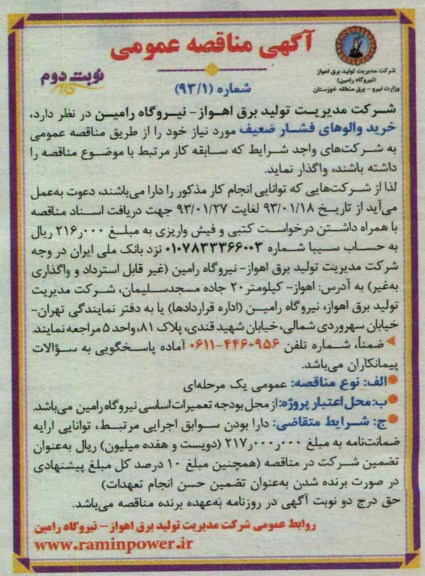 آگهی مناقصه عمومی
نوبت دوم
شماره (۹۳/۱)
شرکت مدیریت تولید برق اهواز
(نیروگاه رامین)
وزارت نیرو - برق منطقه خوزستان
شرکت مدیریت تولید برق اهواز- نیروگاه رامین در نظر دارد،
خرید والوهای فشار ضعیف مورد نیاز خود را از طریق مناقصه عمومی
به شرکت‌های واجد شرایط که سابقه کار مرتبط با موضوع مناقصه را
داشته باشند، واگذار نماید.
لذا از شرکت‌هایی که توانایی انجام کار مذکور را دارا می‌باشند، دعوت به‌عمل
می‌آید از تاریخ ۹۳/۰۱/۱۸ لغایت ۹۳/۰۱/۲۷ جهت دریافت اسناد مناقصه
با همراه داشتن درخواست کتبی و فیش واریزی به مبلغ ۲۱۶٫۰۰۰ ریال
به حساب سیبا شماره ۰۱۰۷۸۳۳۳۶۶۰۰۳ نزد بانک ملی ایران در وجه
شرکت مدیریت تولید برق اهواز- نیروگاه رامین (غیر قابل استرداد و واگذاری
به‌غیر) به آدرس: اهواز- کیلومتر ۲۰ جاده مسجدسلیمان، شرکت مدیریت
تولید برق اهواز، نیروگاه رامین (اداره قراردادها) یا به دفتر نمایندگی تهران-
خیابان سهروردی شمالی، خیابان شهید قندی، پلاک ۸۱، واحد ۵ مراجعه نمایند.
ضمناً، شماره تلفن ۴۴۶۰۹۵۶-۰۶۱۱ آماده پاسخگویی به سؤالات
پیمانکاران می‌باشد.
الف: نوع مناقصه: عمومی یک مرحله‌ای
ب: محل اعتبار پروژه: از محل بودجه تعمیرات اساسی نیروگاه رامین می‌باشد.
ج: شرایط متقاضی: دارا بودن سوابق اجرایی مرتبط، توانایی ارایه
ضمانت‌نامه به مبلغ ۲۱۷٫۰۰۰٫۰۰۰ ریال (دویست و هفده میلیون) ریال به‌عنوان
تضمین شرکت در مناقصه (همچنین مبلغ ۱۰ درصد کل مبلغ پیشنهادی
در صورت برنده شدن به‌عنوان تضمین حسن انجام تعهدات)
حق درج دو نوبت آگهی در روزنامه به‌عهده برنده مناقصه می‌باشد.
روابط عمومی شرکت مدیریت تولید برق اهواز - نیروگاه رامین
www.raminpower.ir